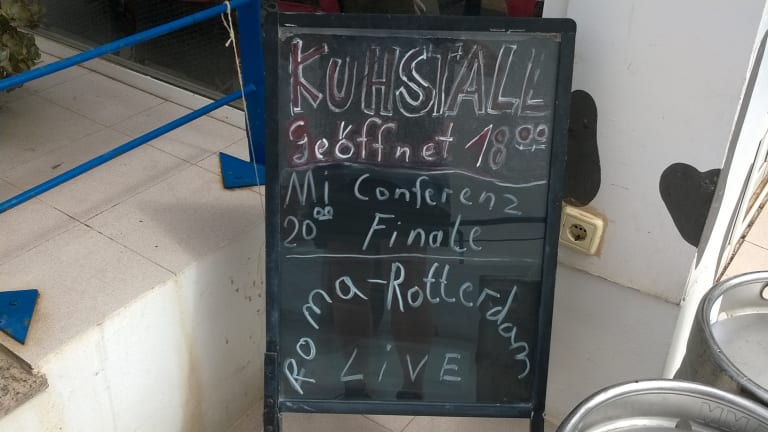 KUHSTALL
Geöffnet 18⁰⁰
Mi Conferenz
20⁰⁰ Finale
Roma-Rotterdam
LIVE